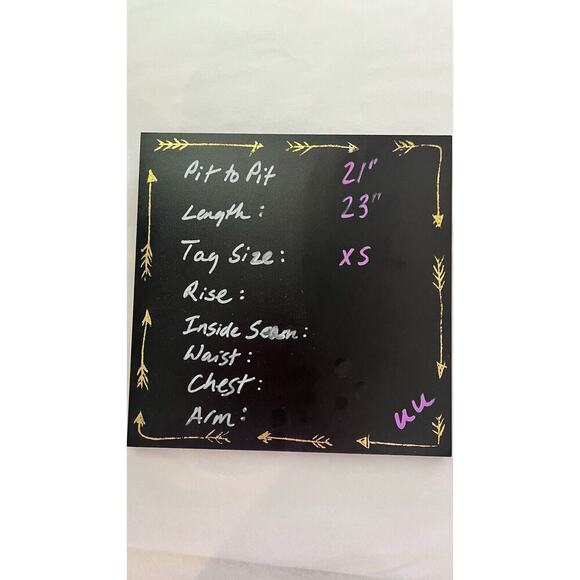 Pit to Pit 21"
Length: 23"
Tag Size: XS
Rise:
Inside Seam:
Waist:
Chest:
Arm:
uu